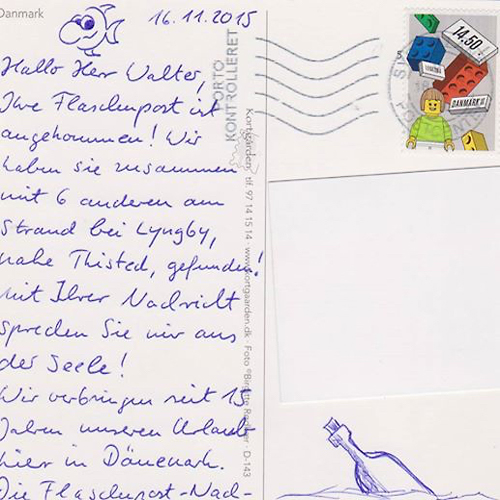 Danmark
16.11.2015
Hallo Herr Walter,
Ihre Flaschenpost ist
angekommen! Wir
haben sie zusammen
mit 6 anderen am
Strand bei Lyngby,
nahe Thisted, gefunden!
Mit Ihrer Nachricht
sprechen Sie mir aus
der Seele!
Wir verbringen seit 15
Jahren unseren Urlaub
hier in Dänemark.
Die Flaschenpost-Nach-
PORTO
KONTROLLERET
Kortgården · tlf. 97 14 15 14 · www.kortgaarden.dk · Foto ©Birgitte · D-143
14.50
DANMARK